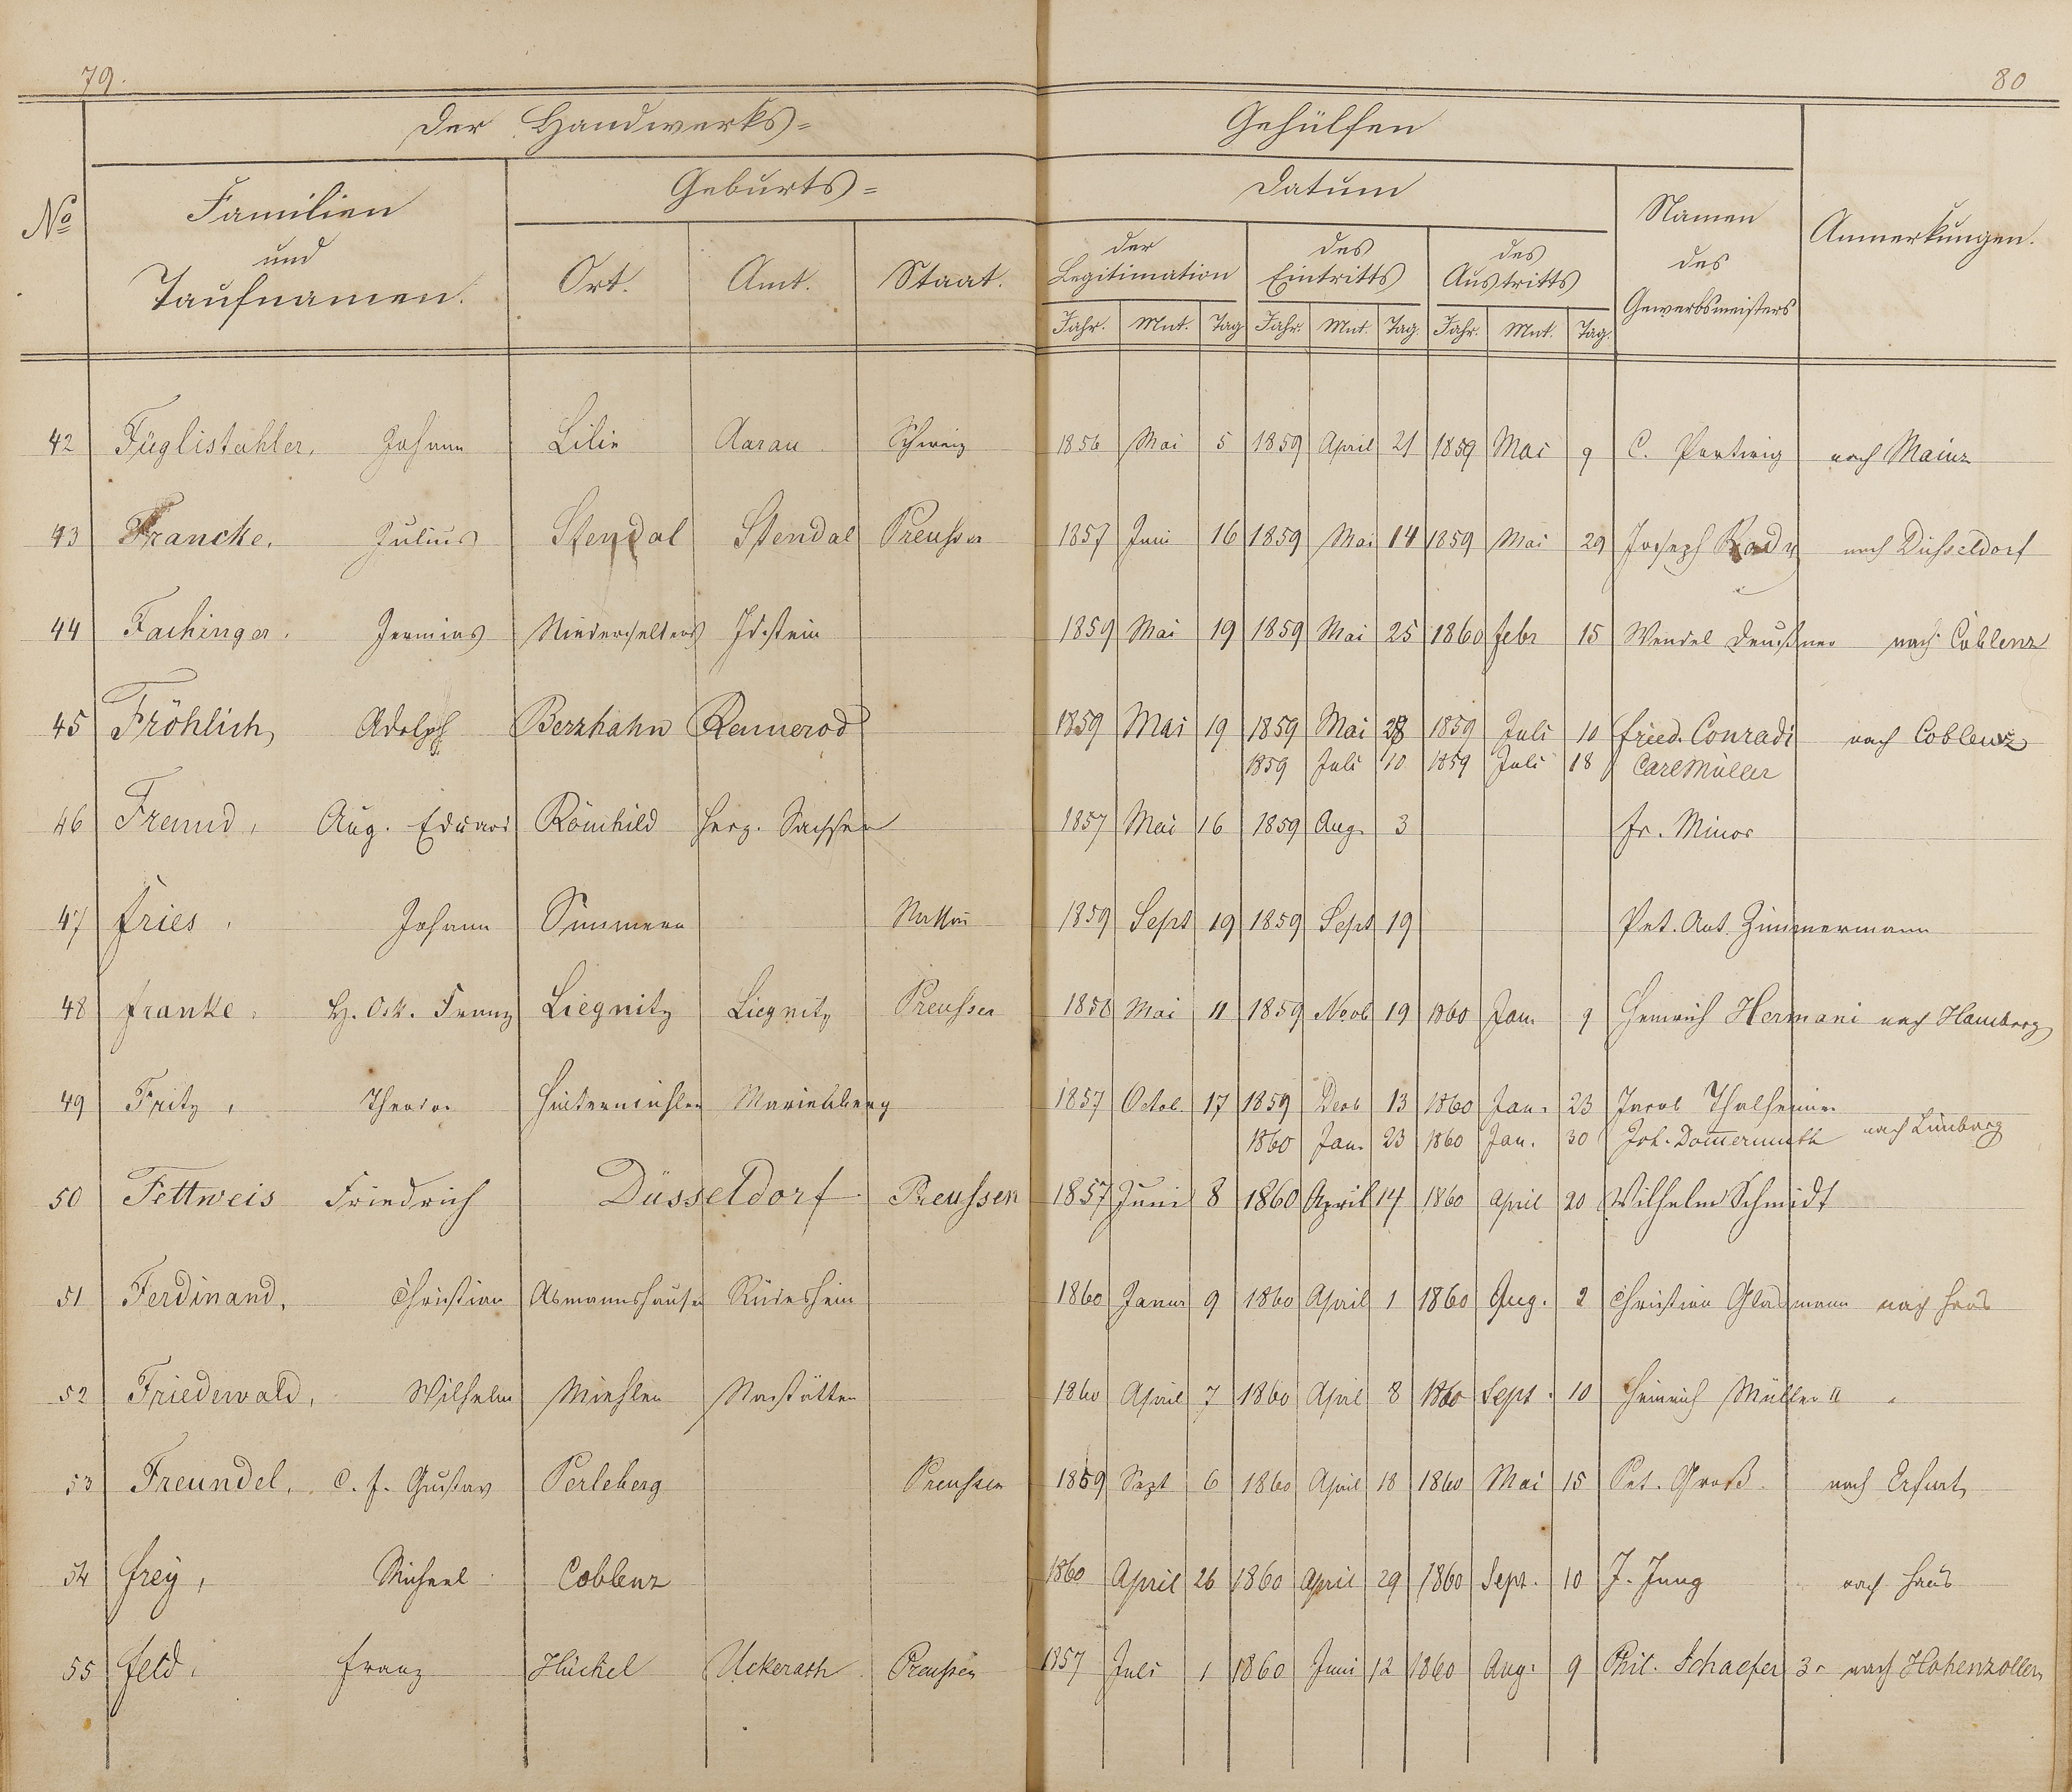 79.
80
Der Handwerks=
Gehülfen
No
Familien
und
Taufnamen.
Geburts=
Ort.
Amt.
Staat.
Datum
der
Legitimation
des
Eintritts
des
Austritts
Jahr. Mnt. Tag Jahr. Mnt. Tag. Jahr. Mnt. Tag.
Namen
des
Gewerbsmeisters
Anmerkungen.
42 Füglistahler, Johann Lilie Aarau Schweiz 1856 Mai 5 1859 April 21 1859 Mai 9 C. nach Mainz
43 Francke, Julius Stendal Stendal Preussen 1857 Juni 16 1859 Mai 14 1859 Mai 29 Joseph nach Düsseldorf
44 Fachinger, Niederselters Idstein 1859 Mai 19 1859 Mai 25 1860 febr 15 Wendel nach Coblenz
45 Fröhlich, Adolph Berzhahn Rennerod 1859 Mai 19 1859 Mai 28 1859 Juli 10 fried. Conradi nach Coblenz
1859 Juli 10 1859 Juli 18 Carl Müller
46 Freund, Aug. Eduard Römhild Herz. Sachsen 1857 Mai 16 1859 Aug. 3 fr. Minor
47 fries, Johann Simmern Nassau 1859 Sept 19 1859 Sept 19 Pet. Ant. Zimmermann
48 franke, H. Franz Liegnitz Liegnitz Preussen 1858 Mai 11 1859 Novb 19 1860 Jan. 9 Heinrich Hermani nach Hamburg
49 Fritz, Theodor Marienberg 1857 Octob. 17 1859 Decb 13 1860 Jan. 23 Jacob Thalheimer
1860 Jan. 23 1860 Jan. 30 Joh. Domermuth nach Limburg
50 Fettweis Friedrich Düsseldorf Preussen 1857 Juni 8 1860 April 14 1860 April 20 Wilhelm Schmidt
51 Ferdinand, Christian Asmannshausen Rüdesheim 1860 Januar 9 1860 April 1 1860 Aug. 2 Christian Glasmann nach Haus
52 Friedewald, Wilhelm Miehlen Nastätten 1860 April 7 1860 April 8 1860 Sept. 10 Heinrich Müller " "
53 Freundel, C. f. Gustav Perleberg Preussen 1859 Sept 6 1860 April 18 1860 Mai 15 Pet. Groß nach Erfurt
54 frey, Michael Coblenz 1860 April 26 1860 April 29 1860 Sept. 10 J. Jung nach Haus
55 feld, franz Hückel Uckerath Preussen 1857 Juli 1 1860 Juni 12 1860 Aug. 9 Phil. Schaefer 3r nach Hohenzollern